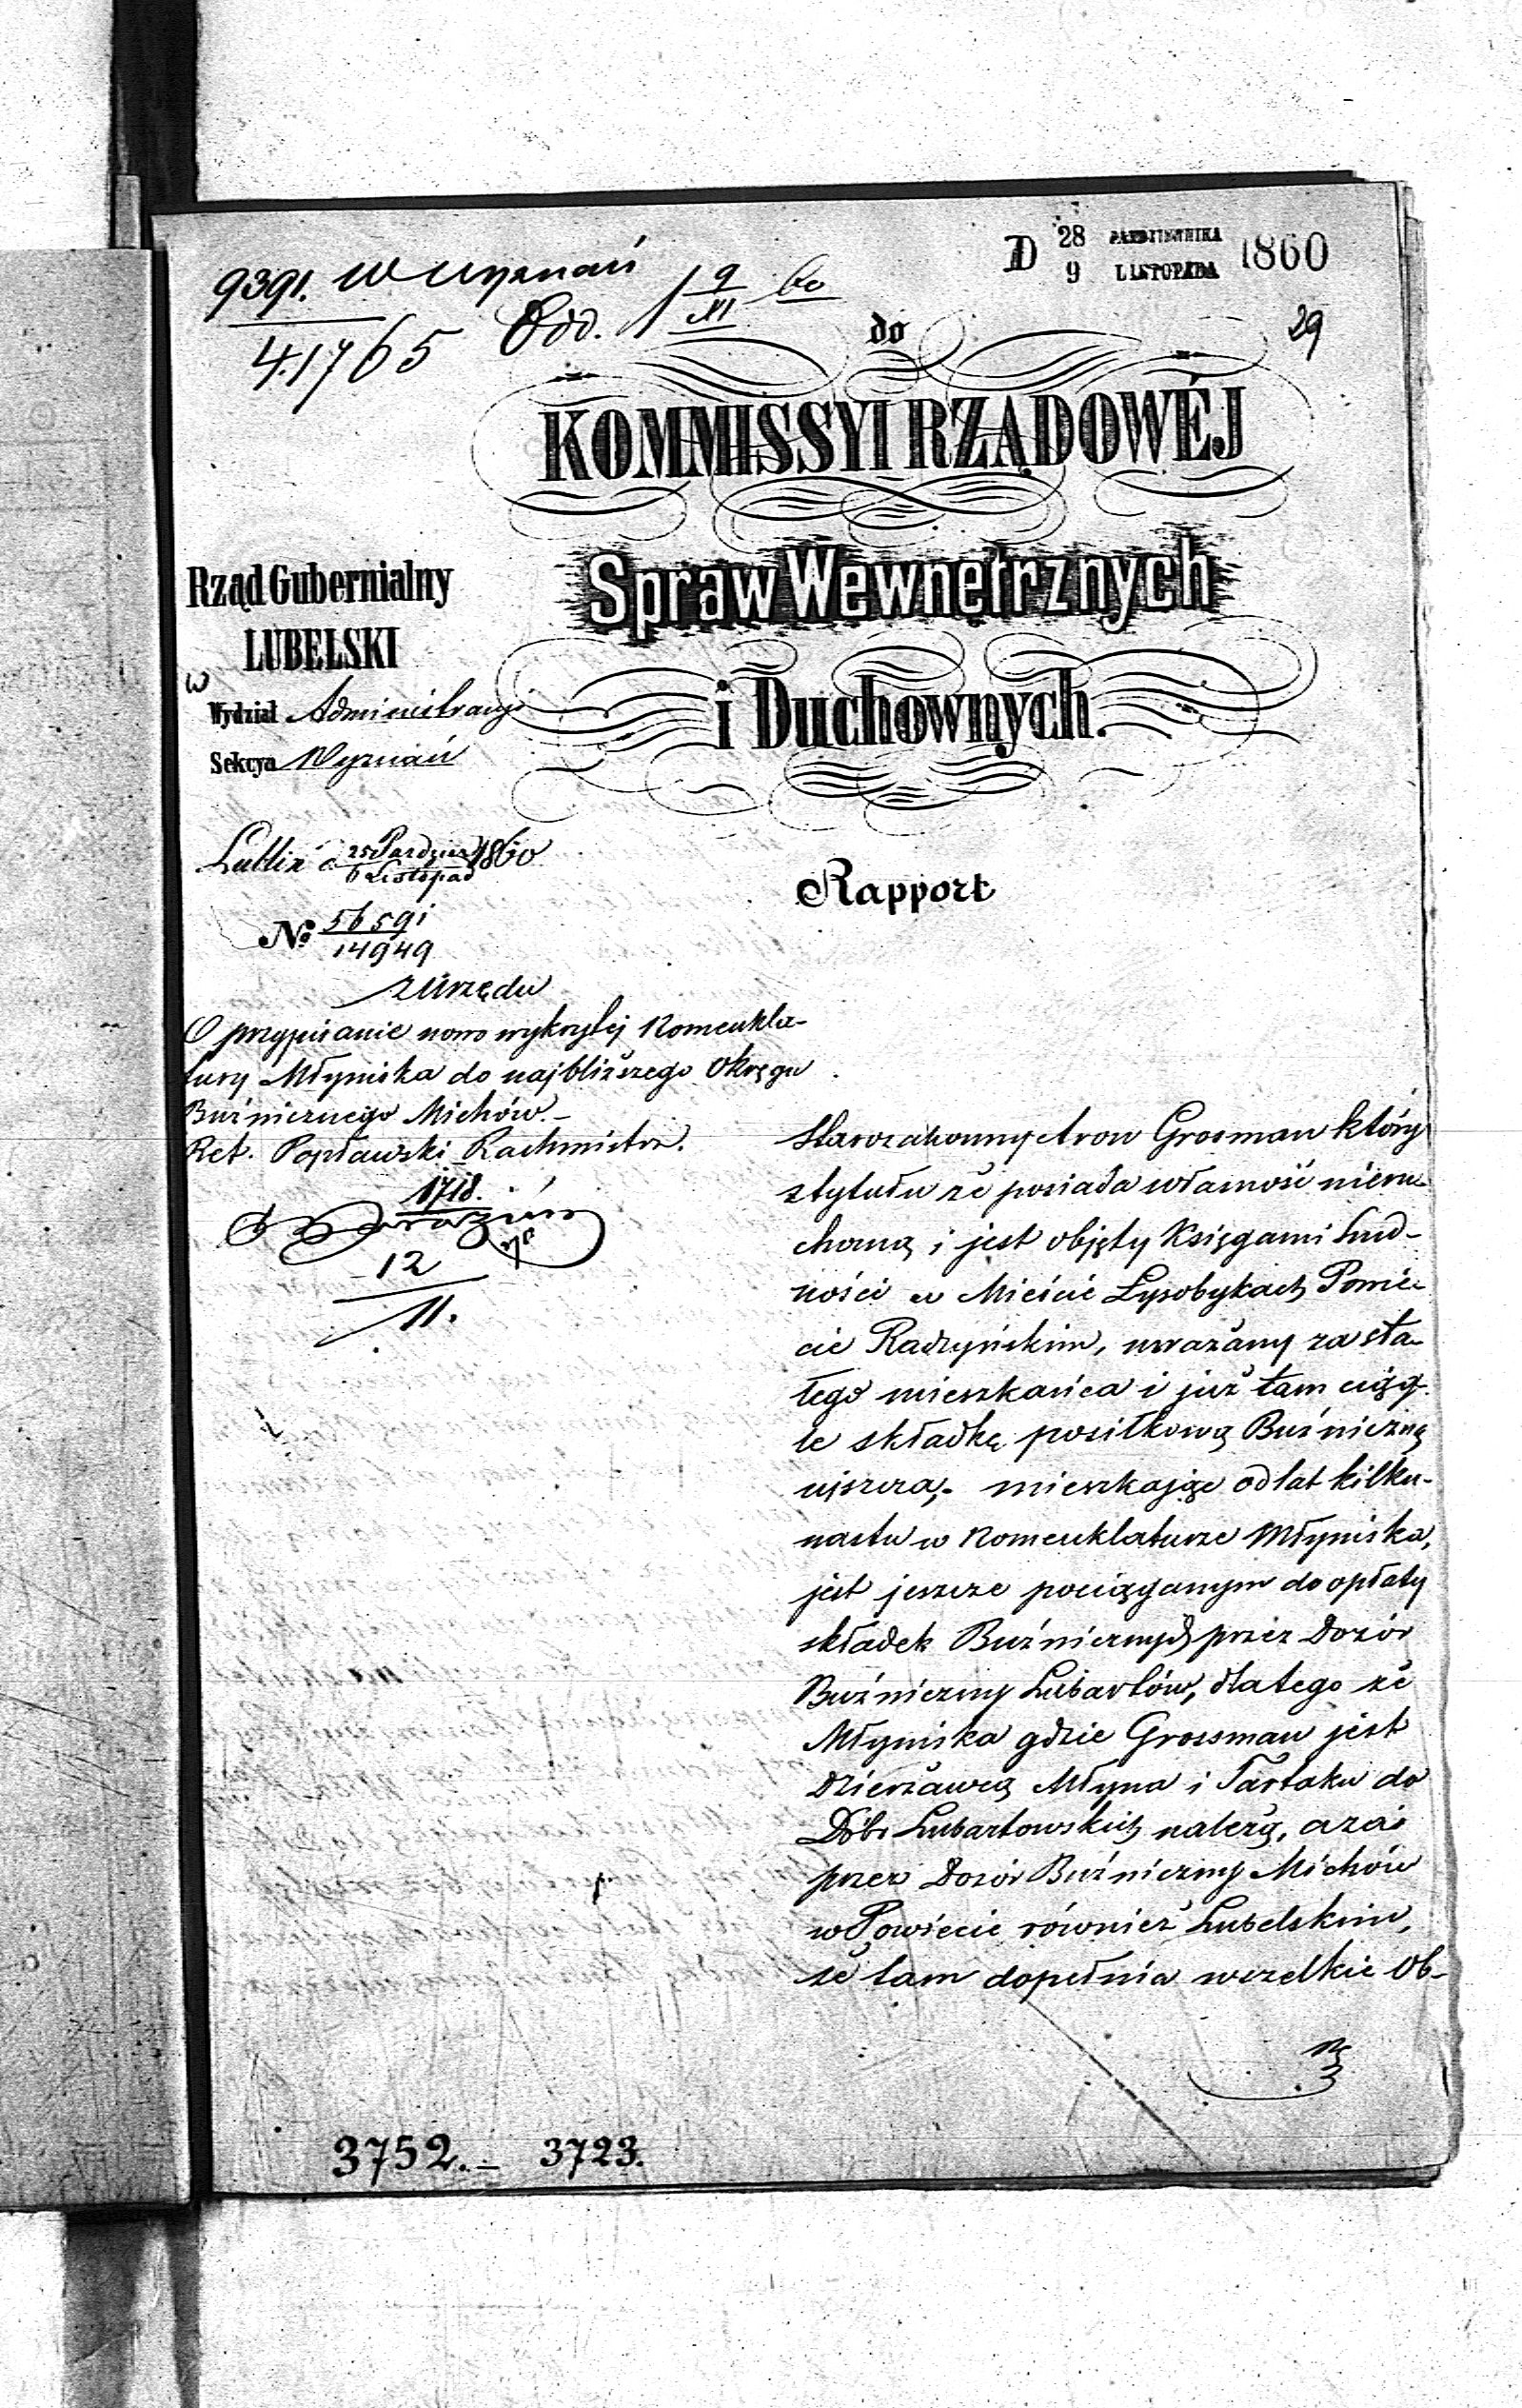 D 28 PAŹDZIERNIKA 1860
9 LISTOPADA
9391. W Wyznań
41765 Odd. 9/XI 60
29
do
KOMMISSYI RZĄDOWÉJ
Spraw Wewnętrznych
i Duchownych.
Rząd Gubernialny
LUBELSKI
w
Wydział Administracyi
Sekcya Wyznań
Lublin d 25 Paździer 1860
6 Listopad
Rapport
№ 56591
14949
z Urzędu
O przypisanie nowo wykrytej Nomenkla-
tury Młyniska do najbliższego Okręgu
Bużnicznego Michów.-
Ret. Popławski Rachmistrz.
1718.
12
11.
Starozakonny Aron Grosman który
z tytułu że posiada własność nieru-
chomą i jest objęty Księgami Lud-
ności w Mieście Łysobykach Powie-
cie Radzyńskim, uważany za sta-
łego mieszkańca i już tam ciąg-
le składkę posiłkową Bużniczną
uiszcza,- mieszkając od lat kilku-
nastu w Nomenklaturze Młyniska,
jest jeszcze pociąganym do opłaty
składek Bużnicznych przez Dozór
Bużniczny Lubartów, dlatego że
Młyniska gdzie Grossman jest
Dzierżawcą Młyna i Tartaku do
Dóbr Lubartowskich należą, a zaś
przez Dozór Bużniczny Michów
w Powiecie również Lubelskim,
że tam dopełnia wszelkie Ob-
3752.- 3723.